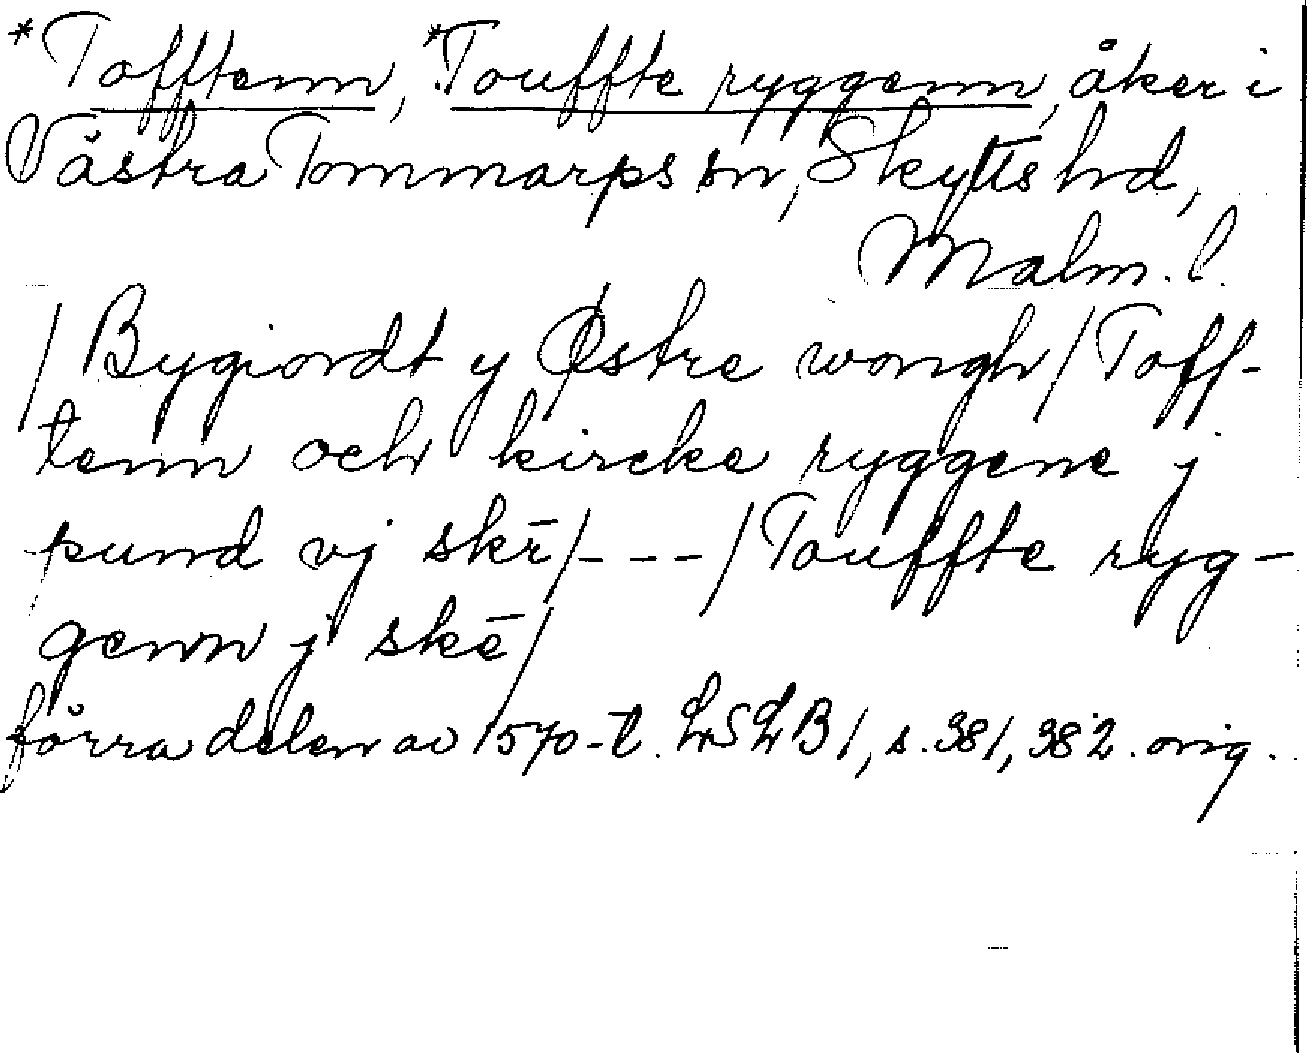 *Tofftenn, *Touffte ryggenn, åker i
Västra Tommarps sn, Skytts hd,
Malm. l.
/ Bygiordt y Østre wongh / Toff-
tenn och kircke ryggene j
pund vj skē / - - - / Touffte ryg-
genn j skē /
förra delen av 1570-t. LrSLB 1, s. 381, 382. orig.